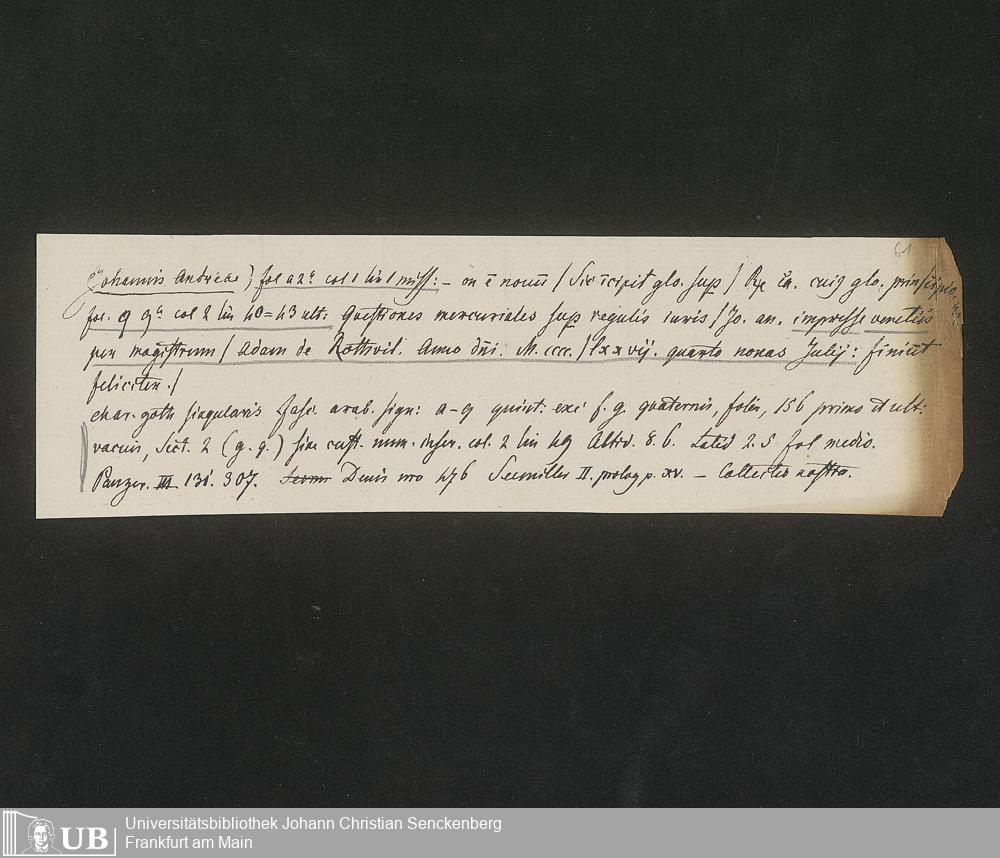 61
Johannis Andreae) fol a2a col 1 lin 1 miss: – on ē nouū / Sic īcipit glo. sup / Rx ca. cui9 glo. principio
fol. q 9a col 2 lin 40=43 ult. Questiones mercuriales sup regulis iuris / Jo. an. impresse venetiis
per magistrum / Adam de Rottvvil. Anno dn̄i. M. cccc. / lxxvij. quarto nonas Julij: finiūt
feliciter. /
char. goth singularis Fasc. arab. sign: a–q quint. exc f. g. quaternis, foliis, 156 primo et ult:
vacuis, Sect. 2 (q. 9.) sine cust. num. inscr. col. 2 lin 49 Altid. 8. 6. Latid 2. 5 fol medio.
Panzer. III 131. 307. Denis nro 476 Seemiller II. prolog p. xv. – Collectio nostra.
UB
Universitätsbibliothek Johann Christian Senckenberg
Frankfurt am Main